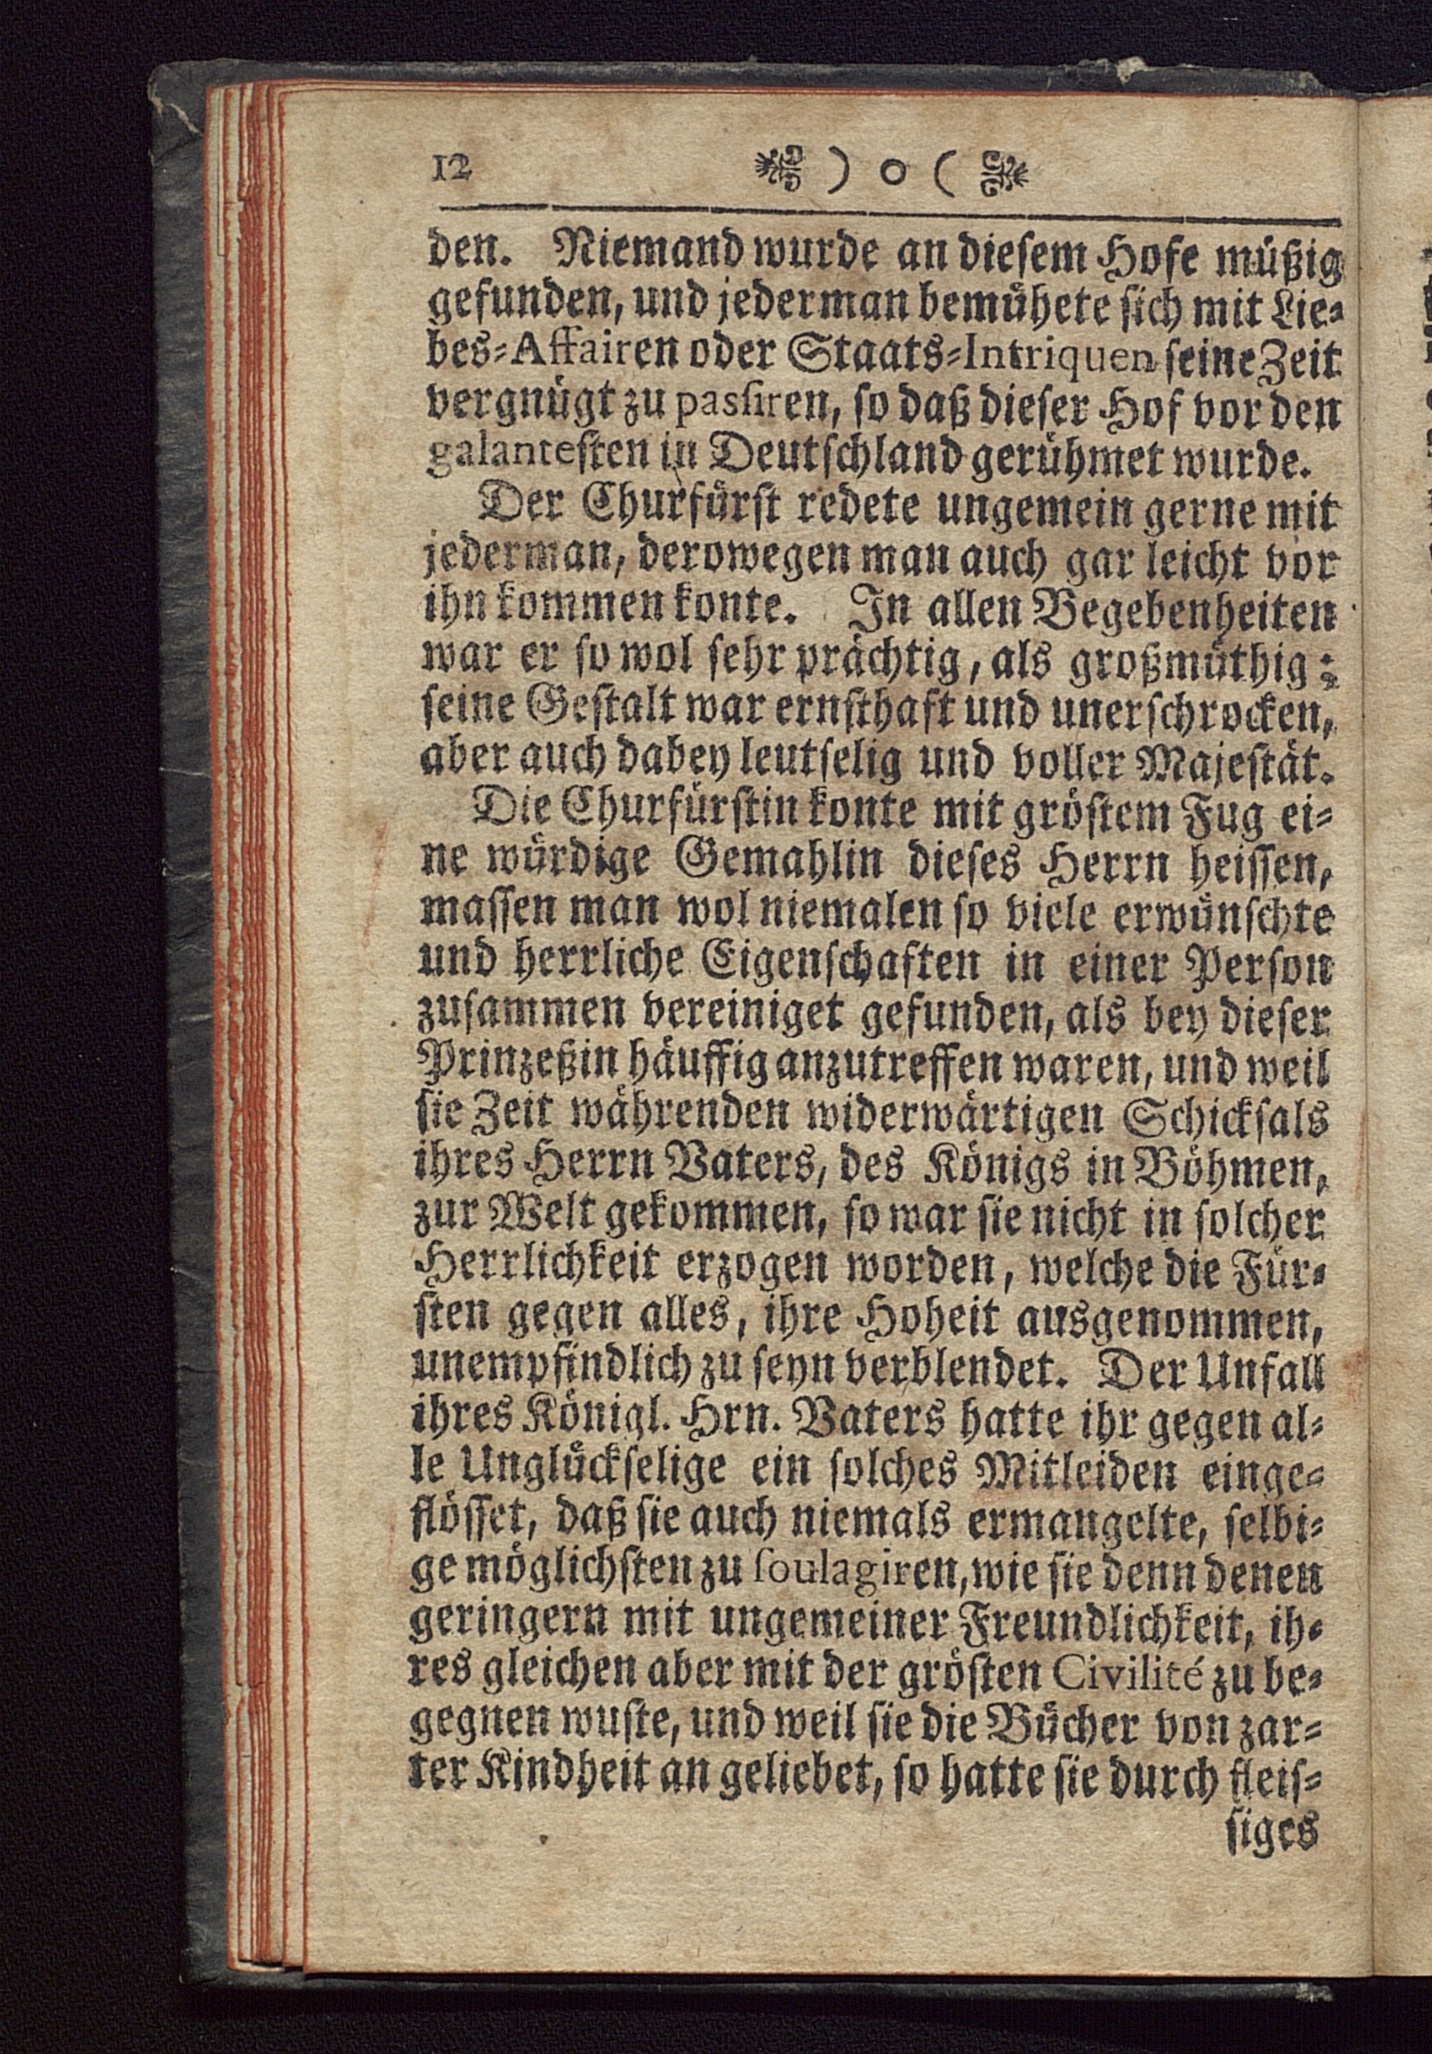 12 ) o (
den. Niemand wurde an diesem Hofe müßig
gefunden, und jederman bemühete sich mit Lie-
bes-Affairen oder Staats-Intriquen seine Zeit
vergnügt zu passiren, so daß dieser Hof vor den
galantesten in Deutschland gerühmet wurde.
Der Churfürst redete ungemein gerne mit
jederman, derowegen man auch gar leicht vor
ihn kommen konte. In allen Begebenheiten
war er so wol sehr prächtig, als großmüthig;
seine Gestalt war ernsthaft und unerschrocken,
aber auch dabey leutselig und voller Majestät.
Die Churfürstin konte mit gröstem Fug ei-
ne würdige Gemahlin dieses Herrn heissen,
massen man wol niemalen so viele erwünschte
und herrliche Eigenschaften in einer Person
zusammen vereiniget gefunden, als bey dieser
Prinzeßin häuffig anzutreffen waren, und weil
sie Zeit währenden widerwärtigen Schicksals
ihres Herrn Vaters, des Königs in Böhmen,
zur Welt gekommen, so war sie nicht in solcher
Herrlichkeit erzogen worden, welche die Für-
sten gegen alles, ihre Hoheit ausgenommen,
unempfindlich zu seyn verblendet. Der Unfall
ihres Königl. Hrn. Vaters hatte ihr gegen al-
le Unglückselige ein solches Mitleiden einge-
flösset, daß sie auch niemals ermangelte, selbi-
ge möglichsten zu soulagiren, wie sie denn denen
geringern mit ungemeiner Freundlichkeit, ih-
res gleichen aber mit der grösten Civilité zu be-
gegnen wuste, und weil sie die Bücher von zar-
ter Kindheit an geliebet, so hatte sie durch fleis-
siges